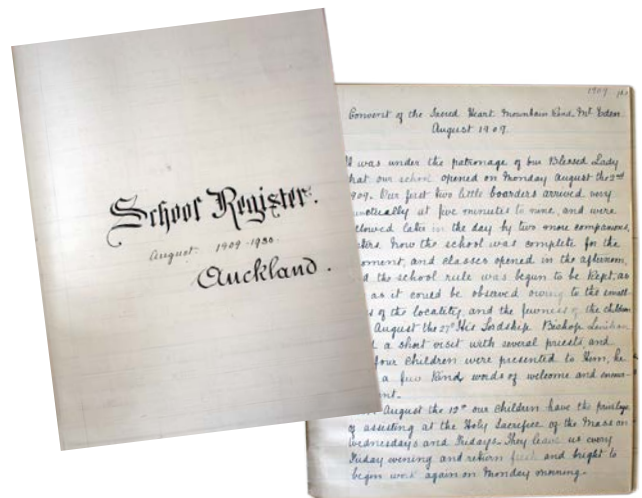 School Register.
August 1909-1930
Auckland.
1909
Convent of the Sacred Heart Mountain Road Mt Eden
August 1909.
It was under the patronage of Our Blessed Lady
that our school opened on Monday August the 2nd
1909. Our first two little boarders arrived very
at five minutes to nine, and were
later in the day by two more companions,
Now the school was complete for the
and classes opened in the afternoon,
the school rule was begun to be kept, as
as it could be observed owing to the small-
of the locality, and the fewness of the children
August the 27th His Lordship Bishop Lenihan
a short visit with several priests, and
four children were presented to Him, he
a few kind words of welcome and
August the 12th our children have the privilege
of assisting at the Holy Sacrifice of the Mass on
Wednesdays and Fridays. They leave us every
Friday evening and return fresh and bright to
begin work again on Monday morning.